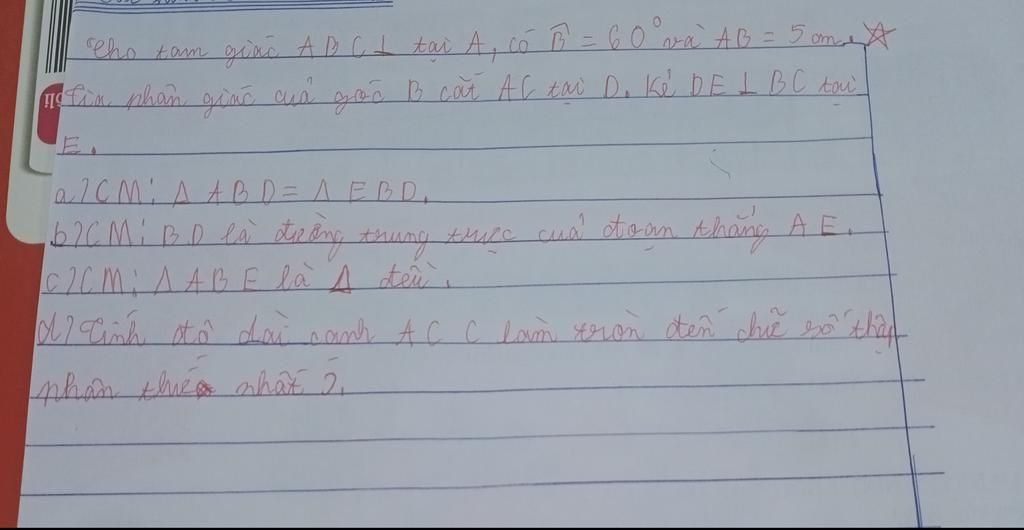 Cho tam giác ABC ⊥ tại A, có B̂ = 60° và AB = 5 cm. ☆
Tia phân giác cuả góc B cắt AC tại D. Kẻ DE ⊥ BC tại
E.
a) CM: Δ ABD = Δ EBD.
b) CM: BD là đường trung trực cuả đoạn thẳng AE.
c) CM: Δ ABE là Δ đều.
d) Tính độ dài cạnh AC ( làm tròn đến chữ số thập
phân thứ nhất ).